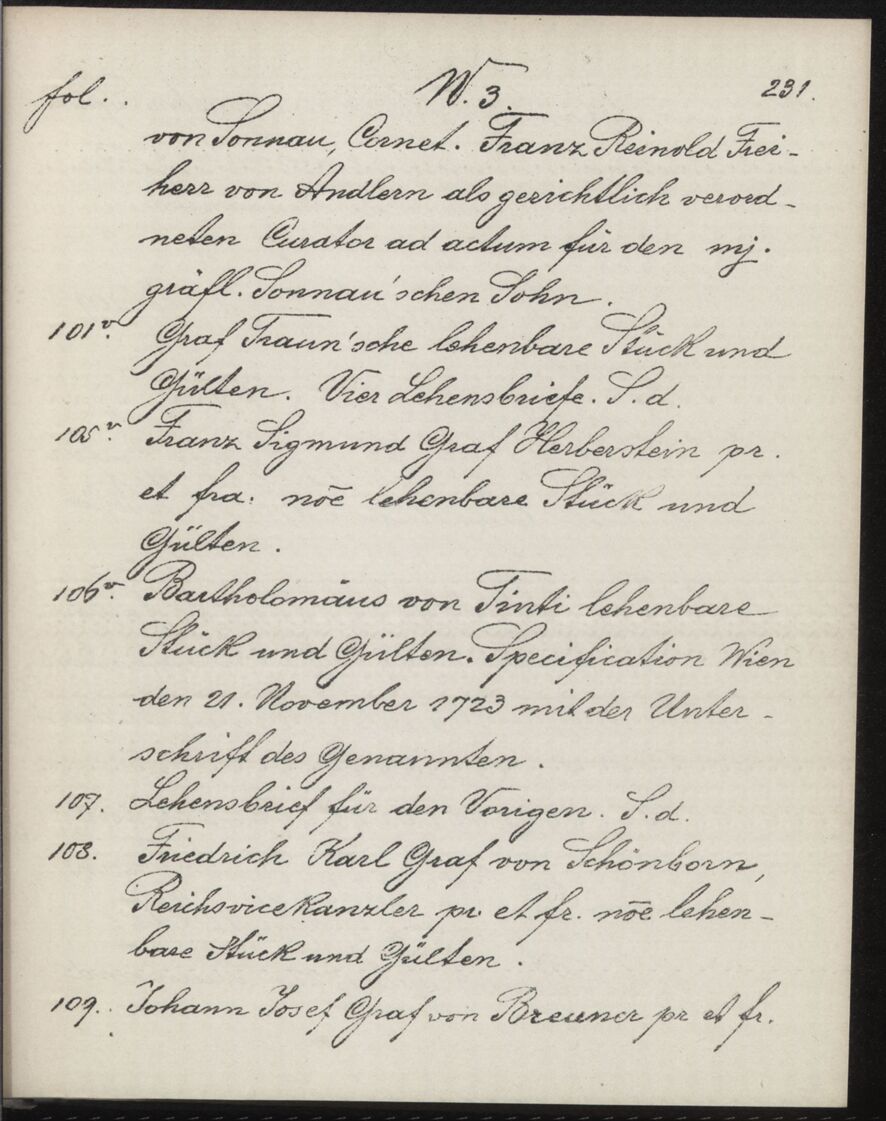 fol. . W. 3. 231.
von Sonnau, Cornet. Franz Reinold Frei-
herr von Andlern als gerichtlich verord-
neten Curator ad actum für den mj.
gräfl. Sonnau'schen Sohn.
101v. Graf Traun'sche lehenbare Stück und
Gülten. Vier Lehensbriefe. S. d.
105v. Franz Sigmund Graf Herberstein pr.
et fra. nōe lehenbare Stück und
Gülten.
106v. Bartholomäus von Tinti lehenbare
Stück und Gülten. Specification Wien
den 21. November 1723 mit der Unter-
schrift des Genannten.
107. Lehensbrief für den Vorigen. S. d.
108. Friedrich Karl Graf von Schönborn,
Reichsvicekanzler pr. et fr. nōe lehen-
bare Stück und Gülten.
109. Johann Josef Graf von Breuner pr et fr.